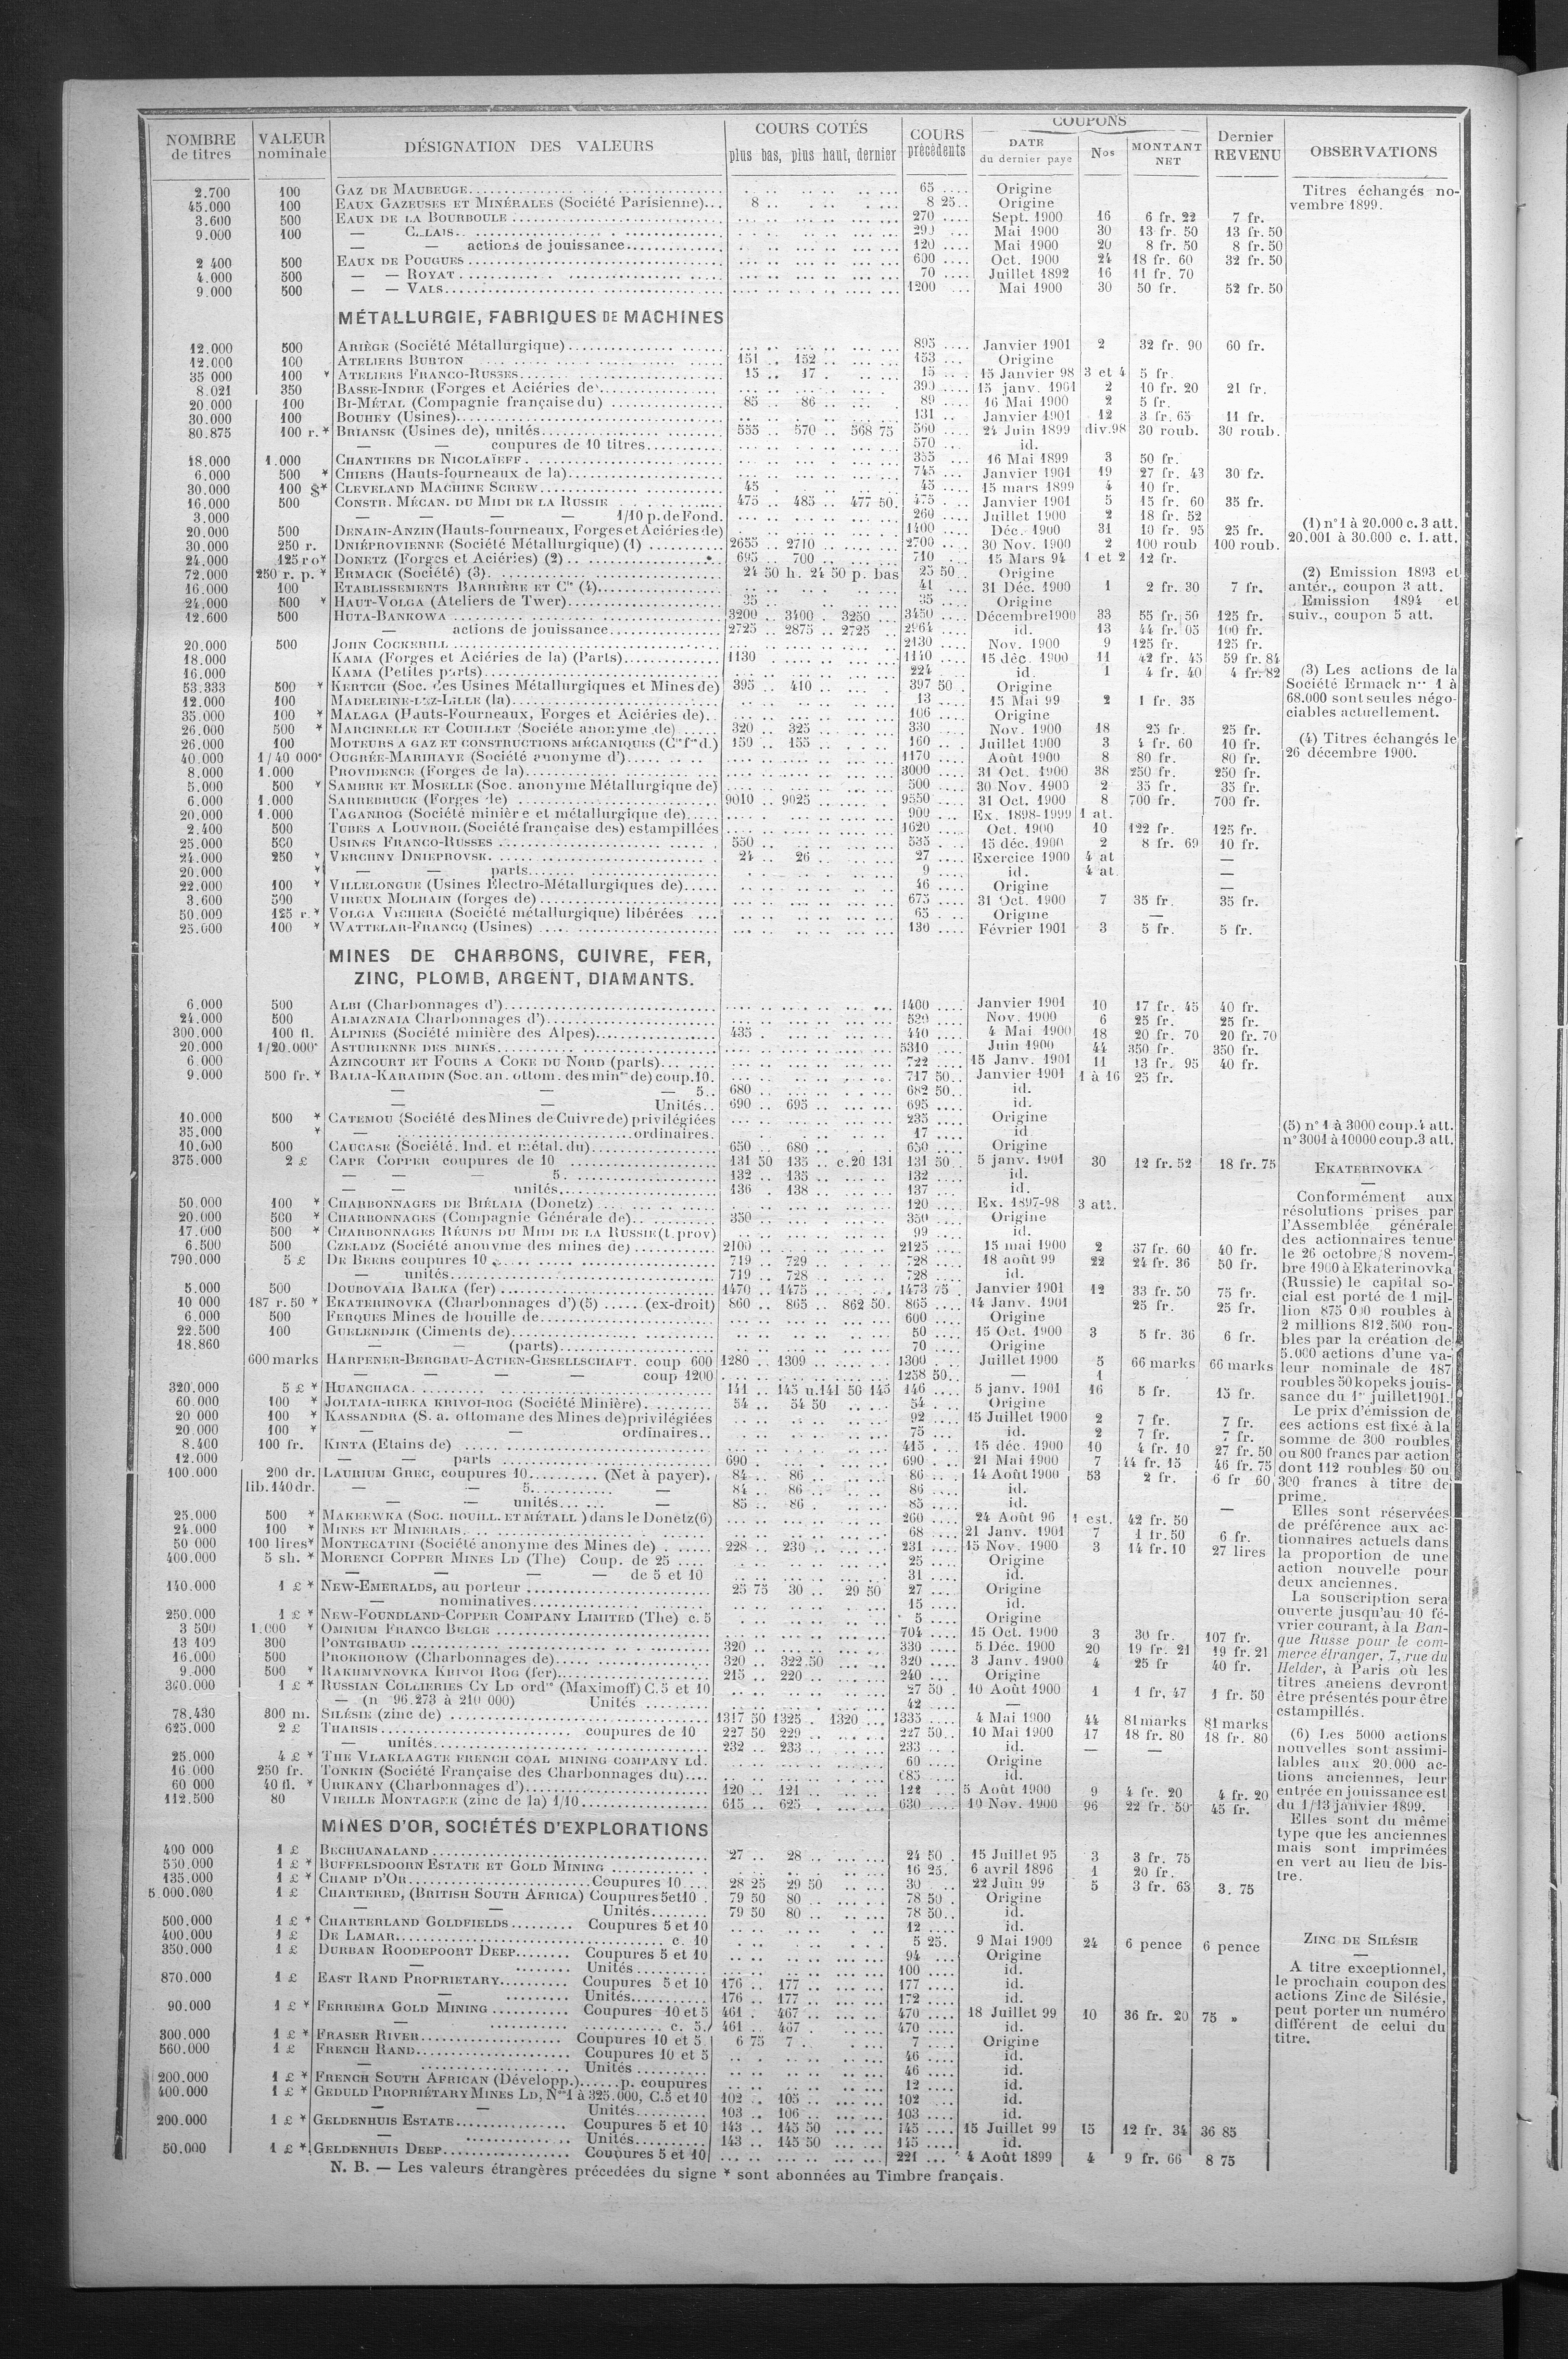 NOMBRE de titres | VALEUR nominale | DÉSIGNATION DES VALEURS | COURS COTÉS plus bas, plus haut, dernier | COURS précédents | COUPONS DATE du dernier payé | Nos | MONTANT NET | Dernier REVENU | OBSERVATIONS
2.700 100 GAZ DE MAUBEUGE 65 Origine
45.000 100 EAUX GAZEUSES ET MINÉRALES (Société Parisienne) 8 8 25 Origine
3.600 500 EAUX DE LA BOURBOULE 270 Sept. 1900 16 6 fr. 22 7 fr.
9.000 100 — 290 Mai 1900 30 13 fr. 50 13 fr. 50
— — actions de jouissance 120 Mai 1900 20 8 fr. 50 8 fr. 50
2 400 500 EAUX DE POUGUES 600 Oct. 1900 24 18 fr. 60 32 fr. 50
4.000 500 — — ROYAT 70 Juillet 1892 16 11 fr. 70
9.000 500 — — VALS 1200 Mai 1900 30 50 fr. 52 fr. 50
MÉTALLURGIE, FABRIQUES DE MACHINES
12.000 500 ARIÈGE (Société Métallurgique) 895 Janvier 1901 2 32 fr. 90 60 fr.
12.000 100 ATELIERS BURTON 151 152 153 Origine
35 000 100 * ATELIERS FRANCO-RUSSES 15 17 15 15 Janvier 98 3 et 4 5 fr.
8.021 350 BASSE-INDRE (Forges et Aciéries de) 390 15 janv. 1901 2 10 fr. 20 21 fr.
20.000 100 BI-MÉTAL (Compagnie française du) 85 86 89 16 Mai 1900 2 5 fr.
30.000 100 BOUHEY (Usines) 131 Janvier 1901 12 3 fr. 65 11 fr.
80.875 100 r. * BRIANSK (Usines de), unités 555 570 568 75 560 24 Juin 1899 div.98 30 roub. 30 roub.
— — coupures de 10 titres 570 id.
18.000 1.000 CHANTIERS DE NICOLAÏEFF 355 16 Mai 1899 3 50 fr.
6.000 500 * CHIERS (Hauts-fourneaux de la) 745 Janvier 1901 19 27 fr. 43 30 fr.
30.000 100 $* CLEVELAND MACHINE SCREW 45 45 15 mars 1899 4 10 fr.
16.000 500 CONSTR. MÉCAN. DU MIDI DE LA RUSSIE 475 485 477 50 475 Janvier 1901 5 15 fr. 60 35 fr.
3.000 — — — — 1/10 p. de Fond. 260 Juillet 1900 2 18 fr. 52
20.000 500 DENAIN-ANZIN (Hauts-fourneaux, Forges et Aciéries de) 1400 Déc. 1900 31 10 fr. 95 25 fr.
30.000 250 r. DNIÉPROVIENNE (Société Métallurgique) (1) 2655 2710 2700 30 Nov. 1900 2 100 roub 100 roub.
24.000 125 r o* DONETZ (Forges et Aciéries) (2) 695 700 710 15 Mars 94 1 et 2 12 fr.
72.000 250 r. p. * ERMACK (Société) (3) 24 50 h. 24 50 p. bas 25 50 Origine
16.000 100 ETABLISSEMENTS BARRIÈRE ET Cie (4) 41 31 Déc. 1900 1 2 fr. 30 7 fr.
24.000 500 * HAUT-VOLGA (Ateliers de Twer) 35 35 Origine
12.600 500 HUTA-BANKOWA 3200 3400 3250 3450 Décembre 1900 33 55 fr. 50 125 fr.
— actions de jouissance 2725 2875 2725 2964 id. 13 44 fr. 05 100 fr.
20.000 500 JOHN COCKERILL 2130 Nov. 1900 9 125 fr. 125 fr.
18.000 KAMA (Forges et Aciéries de la) (Parts) 1130 1140 15 déc. 1900 11 42 fr. 45 59 fr. 84
16.000 KAMA (Petites parts) 224 id. 1 4 fr. 40 4 fr. 82
53.333 500 * KERTCH (Soc. des Usines Métallurgiques et Mines de) 395 410 397 50 Origine
12.000 100 MADELEINE-LEZ-LILLE (la) 13 15 Mai 99 2 1 fr. 35
35.000 100 * MALAGA (Hauts-Fourneaux, Forges et Aciéries de) 106 Origine
26.000 500 * MARCINELLE ET COUILLET (Société anonyme de) 320 325 330 Nov. 1900 18 25 fr. 25 fr.
26.000 100 MOTEURS A GAZ ET CONSTRUCTIONS MÉCANIQUES (Cie fse d.) 150 155 160 Juillet 1900 3 4 fr. 60 10 fr.
40.000 1/40 000e OUGRÉE-MARIHAYE (Société anonyme d') 1170 Août 1900 8 80 fr. 80 fr.
8.000 1.000 PROVIDENCE (Forges de la) 3000 31 Oct. 1900 38 250 fr. 250 fr.
5.000 500 * SAMBRE ET MOSELLE (Soc. anonyme Métallurgique de) 500 30 Nov. 1900 2 35 fr. 35 fr.
6.000 1.000 SARREBRUCK (Forges de) 9010 9025 9550 31 Oct. 1900 8 700 fr. 700 fr.
20.000 1.000 TAGANROG (Société minière et métallurgique de) 900 Ex. 1898-1999 1 at.
2.400 500 TUBES A LOUVROIL (Société française des) estampillées 1620 Oct. 1900 10 122 fr. 125 fr.
25.000 500 USINES FRANCO-RUSSES 550 535 15 déc. 1900 2 8 fr. 69 10 fr.
24.000 250 * VERCHNY DNIEPROVSK 24 26 27 Exercice 1900 4 at —
20.000 * — — parts 9 id. 4 at. —
22.000 100 * VILLELONGUE (Usines Électro-Métallurgiques de) 46 Origine —
3.600 500 VIREUX MOLHAIN (forges de) 675 31 Oct. 1900 7 35 fr. 35 fr.
50.000 125 r.* VOLGA VICHERA (Société métallurgique) libérées 65 Origine —
25.000 100 * WATTELAR-FRANCQ (Usines) 130 Février 1901 3 5 fr. 5 fr.
MINES DE CHARBONS, CUIVRE, FER,
ZINC, PLOMB, ARGENT, DIAMANTS.
6.000 500 ALBI (Charbonnages d') 1400 Janvier 1901 10 17 fr. 45 40 fr.
24.000 500 ALMAZNAIA Charbonnages d') 520 Nov. 1900 6 25 fr. 25 fr.
300.000 100 fl. ALPINES (Société minière des Alpes) 435 440 4 Mai 1900 18 20 fr. 70 20 fr. 70
20.000 1/20.000e ASTURIENNE DES MINES 5310 Juin 1900 44 350 fr. 350 fr.
6.000 AZINCOURT ET FOURS A COKE DU NORD (parts) 722 15 Janv. 1901 11 13 fr. 95 40 fr.
9.000 500 fr. * BALIA-KARAIDIN (Soc. an. ottom. des mines de) coup. 10. 717 50 Janvier 1901 1 à 16 25 fr.
— — — 5 680 682 50 id.
— — Unités 690 695 695 id.
10.000 500 * CATEMOU (Société des Mines de Cuivre de) privilégiées 235 Origine
35.000 * — ordinaires 17 id
10.000 500 CAUCASE (Société. Ind. et métal. du) 650 680 650 Origine
375.000 2 £ CAPE COPPER coupures de 10 131 50 135 c. 20 131 131 50 5 janv. 1901 30 12 fr. 52 18 fr. 75
— — — 5. 132 135 132 id.
— — unités 136 138 137 id.
50.000 100 * CHARBONNAGES DE BIÉLAIA (Donetz) 120 Ex. 1897-98 3 att.
20.000 500 * CHARBONNAGES (Compagnie Générale de) 350 350 Origine
17.000 500 * CHARBONNAGES RÉUNIS DU MIDI DE LA RUSSIE (t. prov) 99 id.
6.500 500 CZELADZ (Société anonyme des mines de) 2100 2125 15 mai 1900 2 37 fr. 60 40 fr.
790.000 5 £ DE BEERS coupures 10 719 729 728 18 août 99 22 24 fr. 36 50 fr.
— unités 719 728 728 id.
5.000 500 DOUBOVAIA BALKA (fer) 1470 1475 1473 75 Janvier 1901 12 33 fr. 50 75 fr.
10 000 187 r. 50 * EKATERINOVKA (Charbonnages d') (5) (ex-droit) 860 865 862 50 865 14 Janv. 1901 25 fr. 25 fr.
6.000 500 FERQUES Mines de houille de 600 Origine
22.500 100 GUELENDJIK (Ciments de) 50 15 Oct. 1900 3 5 fr. 36 6 fr.
18.860 — — (parts) 70 Origine
600 marks HARPENER-BERGBAU-ACTIEN-GESELLSCHAFT. coup 600 1280 1309 1300 Juillet 1900 5 66 marks 66 marks
— — — — coup 1200 1258 50 — 1
320.000 5 £ * HUANCHACA 141 145 u.141 50 145 146 5 janv. 1901 16 5 fr. 15 fr.
60.000 100 * JOLTAIA-RIEKA KRIVOI-ROG (Société Minière) 54 54 50 54 Origine
20 000 100 * KASSANDRA (S. a. ottomane des Mines de) privilégiées 92 15 Juillet 1900 2 7 fr. 7 fr.
20.000 100 * — — ordinaires 75 id. 2 7 fr. 7 fr.
8.400 100 fr. KINTA (Etains de) 415 15 déc. 1900 10 4 fr. 10 27 fr. 50
12.000 — — parts 690 690 21 Mai 1900 7 44 fr. 15 46 fr. 75
100.000 200 dr. LAURIUM GREC, coupures 10 (Net à payer) 84 86 86 14 Août 1900 53 2 fr. 6 fr 60
lib. 140 dr. — — 5 — 84 86 86 id.
— — unités — 85 86 85 id. —
25.000 500 * MAKEEWKA (SOC. HOUILL. ET MÉTALL) dans le Donetz (6) 260 24 Août 96 1 est. 42 fr. 50
24.000 100 * MINES ET MINERAIS 68 21 Janv. 1901 7 1 fr. 50 6 fr.
50 000 100 lires* MONTECATINI (Société anonyme des Mines de) 228 230 231 15 Nov. 1900 3 14 fr. 10 27 lires
400.000 5 sh. * MORENCI COPPER MINES LD (The) Coup. de 25 25 Origine
— — — — de 5 et 10 31 id.
140.000 1 £ * NEW-EMERALDS, au porteur 25 75 30 29 50 27 Origine
— nominatives 15 id.
250.000 1 £ * NEW-FOUNDLAND-COPPER COMPANY LIMITED (The) c. 5 5 Origine
3 500 1.000 * OMNIUM FRANCO BELGE 704 15 Oct. 1900 3 30 fr. 107 fr.
13 100 300 PONTGIBAUD 320 330 5 Déc. 1900 20 19 fr. 21 19 fr. 21
16.000 500 PROKHOROW (Charbonnages de) 320 322.50 320 3 Janv. 1900 4 25 fr 40 fr.
9.000 500 * RAKHMYNOVKA KRIVOI ROG (fer) 215 220 240 Origine
360.000 1 £ * RUSSIAN COLLIERIES CY LD ordres (Maximoff) C. 5 et 10 27 50 10 Août 1900 1 1 fr. 47 1 fr. 50
— (n 96.273 à 210 000) Unités 42 —
78.430 300 m. SILÉSIE (zinc de) 1317 50 1325 1320 1335 4 Mai 1900 44 81 marks 81 marks
625.000 2 £ THARSIS coupures de 10 227 50 229 227 50 10 Mai 1900 17 18 fr. 80 18 fr. 80
— unités 232 233 233 id. — —
25.000 4 £ * THE VLAKLAAGTE FRENCH COAL MINING COMPANY LD. 60 Origine
16.000 250 fr. TONKIN (Société Française des Charbonnages du) 685 id.
60 000 40 fl. * URIKANY (Charbonnages d') 120 121 122 5 Août 1900 9 4 fr. 20 4 fr. 20
112.500 80 VIEILLE MONTAGNE (zinc de la) 1/10 615 625 630 10 Nov. 1900 96 22 fr. 50 45 fr.
MINES D'OR, SOCIÉTÉS D'EXPLORATIONS
400 000 1 £ BECHUANALAND 27 28 24 50 15 Juillet 95 3 3 fr. 75
550.000 1 £ * BUFFELSDOORN ESTATE ET GOLD MINING 16 25 6 avril 1896 1 20 fr.
135.000 1 £ * CHAMP D'OR Coupures 10 28 25 29 50 30 22 Juin 99 5 3 fr. 65 3. 75
5.000.000 1 £ CHARTERED, (BRITISH SOUTH AFRICA) Coupures 5 et 10 79 50 80 78 50 Origine
— — Unités 79 50 80 78 50 id.
500.000 1 £ * CHARTERLAND GOLDFIELDS Coupures 5 et 10 12 id.
400.000 1 £ DE LAMAR c. 10 5 25 9 Mai 1900 24 6 pence 6 pence
350.000 1 £ DURBAN ROODEPOORT DEEP Coupures 5 et 10 94 Origine
— Unités 100 id.
870.000 1 £ EAST RAND PROPRIETARY Coupures 5 et 10 176 177 177 id.
— Unités 176 177 172 id.
90.000 1 £ * FERREIRA GOLD MINING Coupures 10 et 5 461 467 470 18 Juillet 99 10 36 fr. 20 75 »
— c. 5. 461 467 470 id.
300.000 1 £ * FRASER RIVER Coupures 10 et 5 6 75 7 7 Origine
560.000 1 £ FRENCH RAND Coupures 10 et 5 46 id.
— Unités 46 id.
200.000 1 £ * FRENCH SOUTH AFRICAN (Développ.) p. coupures 12 id.
400.000 1 £ * GEDULD PROPRIÉTARY MINES LD, Nos 1 à 325.000, C. 5 et 10 102 105 102 id.
— — Unités 103 106 103 id.
200.000 1 £ * GELDENHUIS ESTATE Coupures 5 et 10 143 145 50 145 15 Juillet 99 15 12 fr. 34 36 85
— Unités 143 145 50 145 id.
50.000 1 £ * GELDENHUIS DEEP Coupures 5 et 10 221 4 Août 1899 4 9 fr. 66 8 75
N. B. — Les valeurs étrangères précedées du signe * sont abonnées au Timbre français.
Titres échangés no-
vembre 1899.
(1) n° 1 à 20.000 c. 3 att.
20.001 à 30.000 c. 1. att.
(2) Emission 1893 et
antér., coupon 3 att.
Emission 1894 et
suiv., coupon 5 att.
(3) Les actions de la
Société Ermack nos 1 à
68.000 sont seules négo-
ciables actuellement.
(4) Titres échangés le
26 décembre 1900.
(5) n° 1 à 3000 coup. 4 att.
n° 3001 à 10000 coup. 3 att.
EKATERINOVKA
—
Conformément aux
résolutions prises par
l'Assemblée générale
des actionnaires tenue
le 26 octobre/8 novem-
bre 1900 à Ekaterinovka
(Russie) le capital so-
cial est porté de 1 mil-
lion 875 000 roubles à
2 millions 812.500 rou-
bles par la création de
5.000 actions d'une va-
leur nominale de 187
roubles 50 kopeks jouis-
sance du 1er juillet 1901.
Le prix d'émission de
ces actions est fixé à la
somme de 300 roubles
ou 800 francs par action
dont 112 roubles 50 ou
300 francs à titre de
prime.
Elles sont réservées
de préférence aux ac-
tionnaires actuels dans
la proportion de une
action nouvelle pour
deux anciennes.
La souscription sera
ouverte jusqu'au 10 fé-
vrier courant, à la Ban-
que Russe pour le com-
merce étranger, 7, rue du
Helder, à Paris où les
titres anciens devront
être présentés pour être
estampillés.
(6) Les 5000 actions
nouvelles sont assimi-
lables aux 20.000 ac-
tions anciennes, leur
entrée en jouissance est
du 1/13 janvier 1899.
Elles sont du même
type que les anciennes
mais sont imprimées
en vert au lieu de bis-
tre.
ZINC DE SILÉSIE
—
A titre exceptionnel,
le prochain coupon des
actions Zinc de Silésie,
peut porter un numéro
différent de celui du
titre.